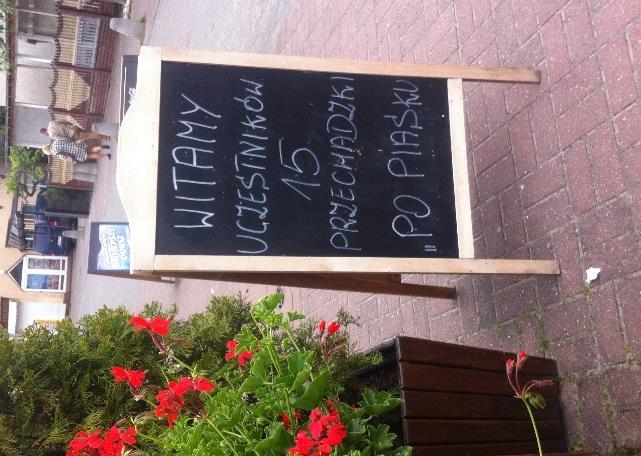 WITAMY
UCZESTNIKÓW
15
PRZECHADZKI
„PO PIASKU